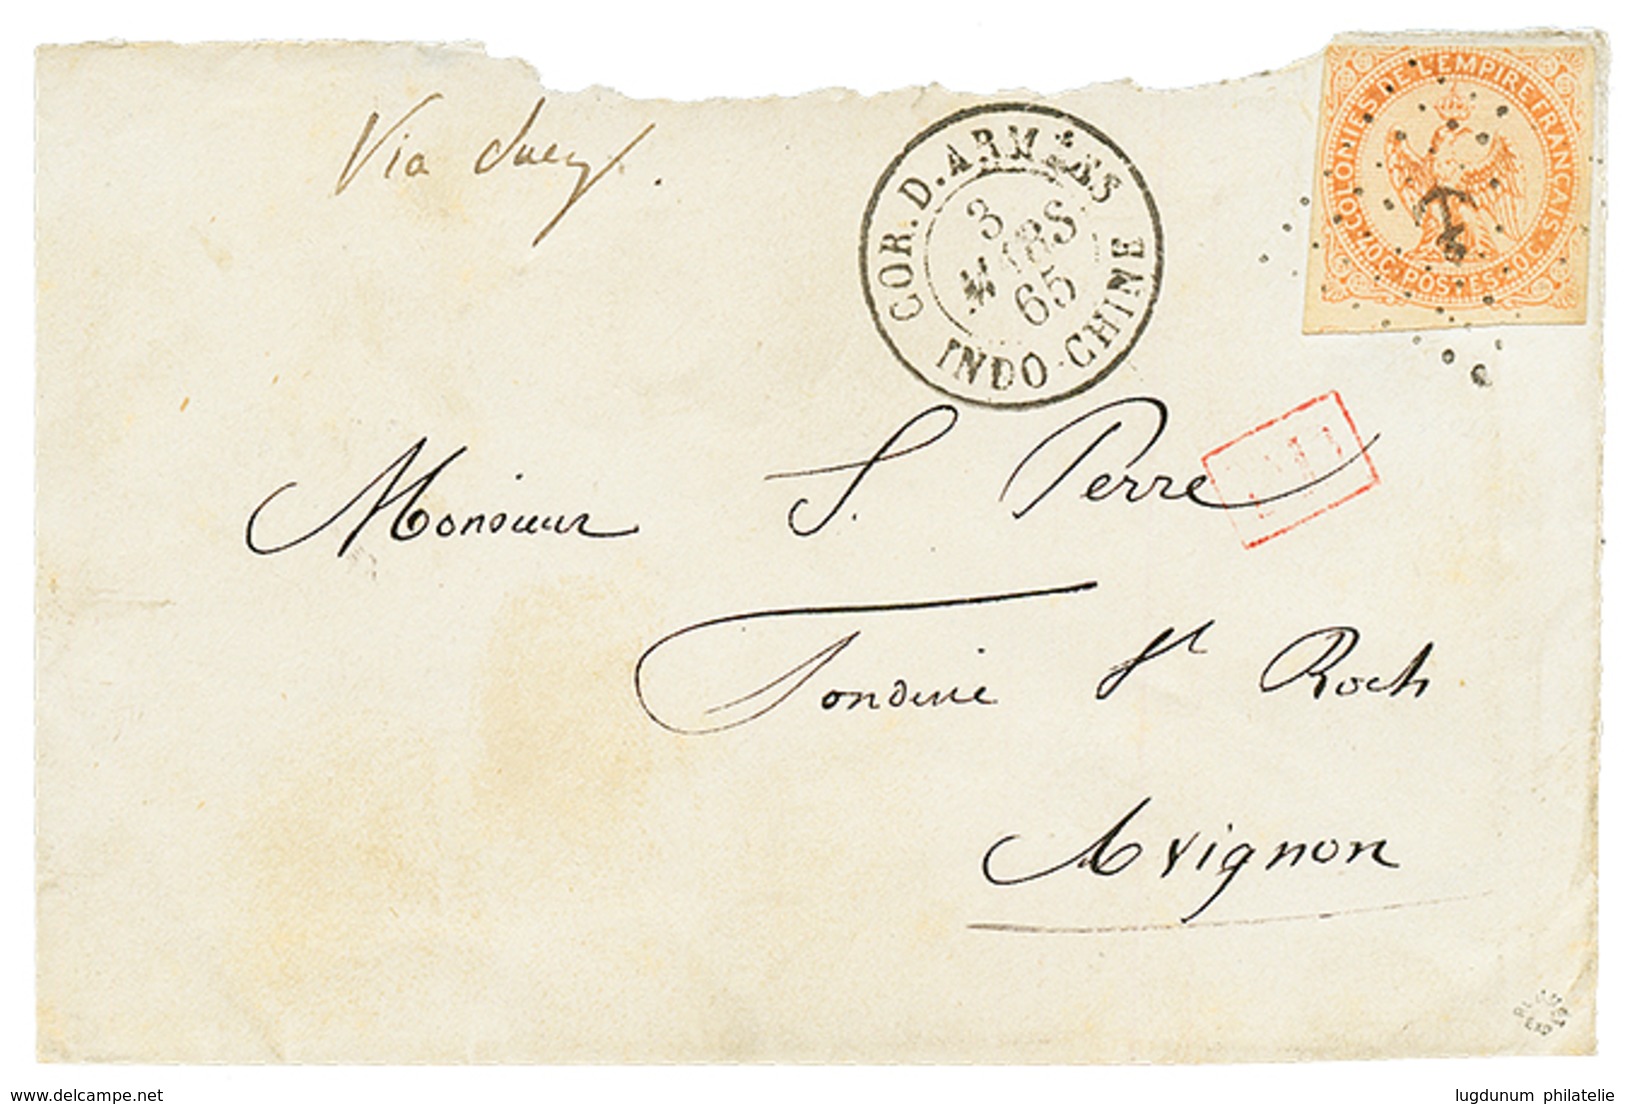 Via Suez.
COLONIES DE L'EMPIRE FRANÇAIS
40 C. POSTES 40 C.
COR. D. ARMÉES
3
MARS
65
INDO-CHINE
Monsieur S. Perre
Fonderie St Roch
Avignon
delcampe.net
lugdunum philatelie